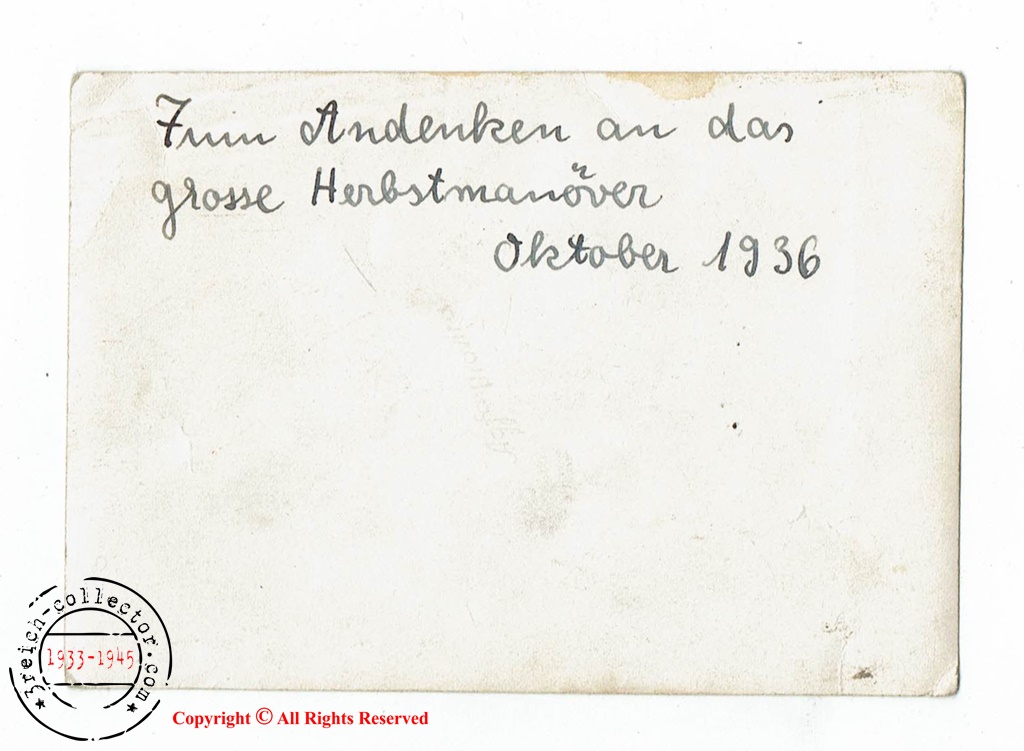 Zum Andenken an das
grosse Herbstmanöver
Oktober 1936
3reich-collector.com
1933-1945
Copyright © All Rights Reserved